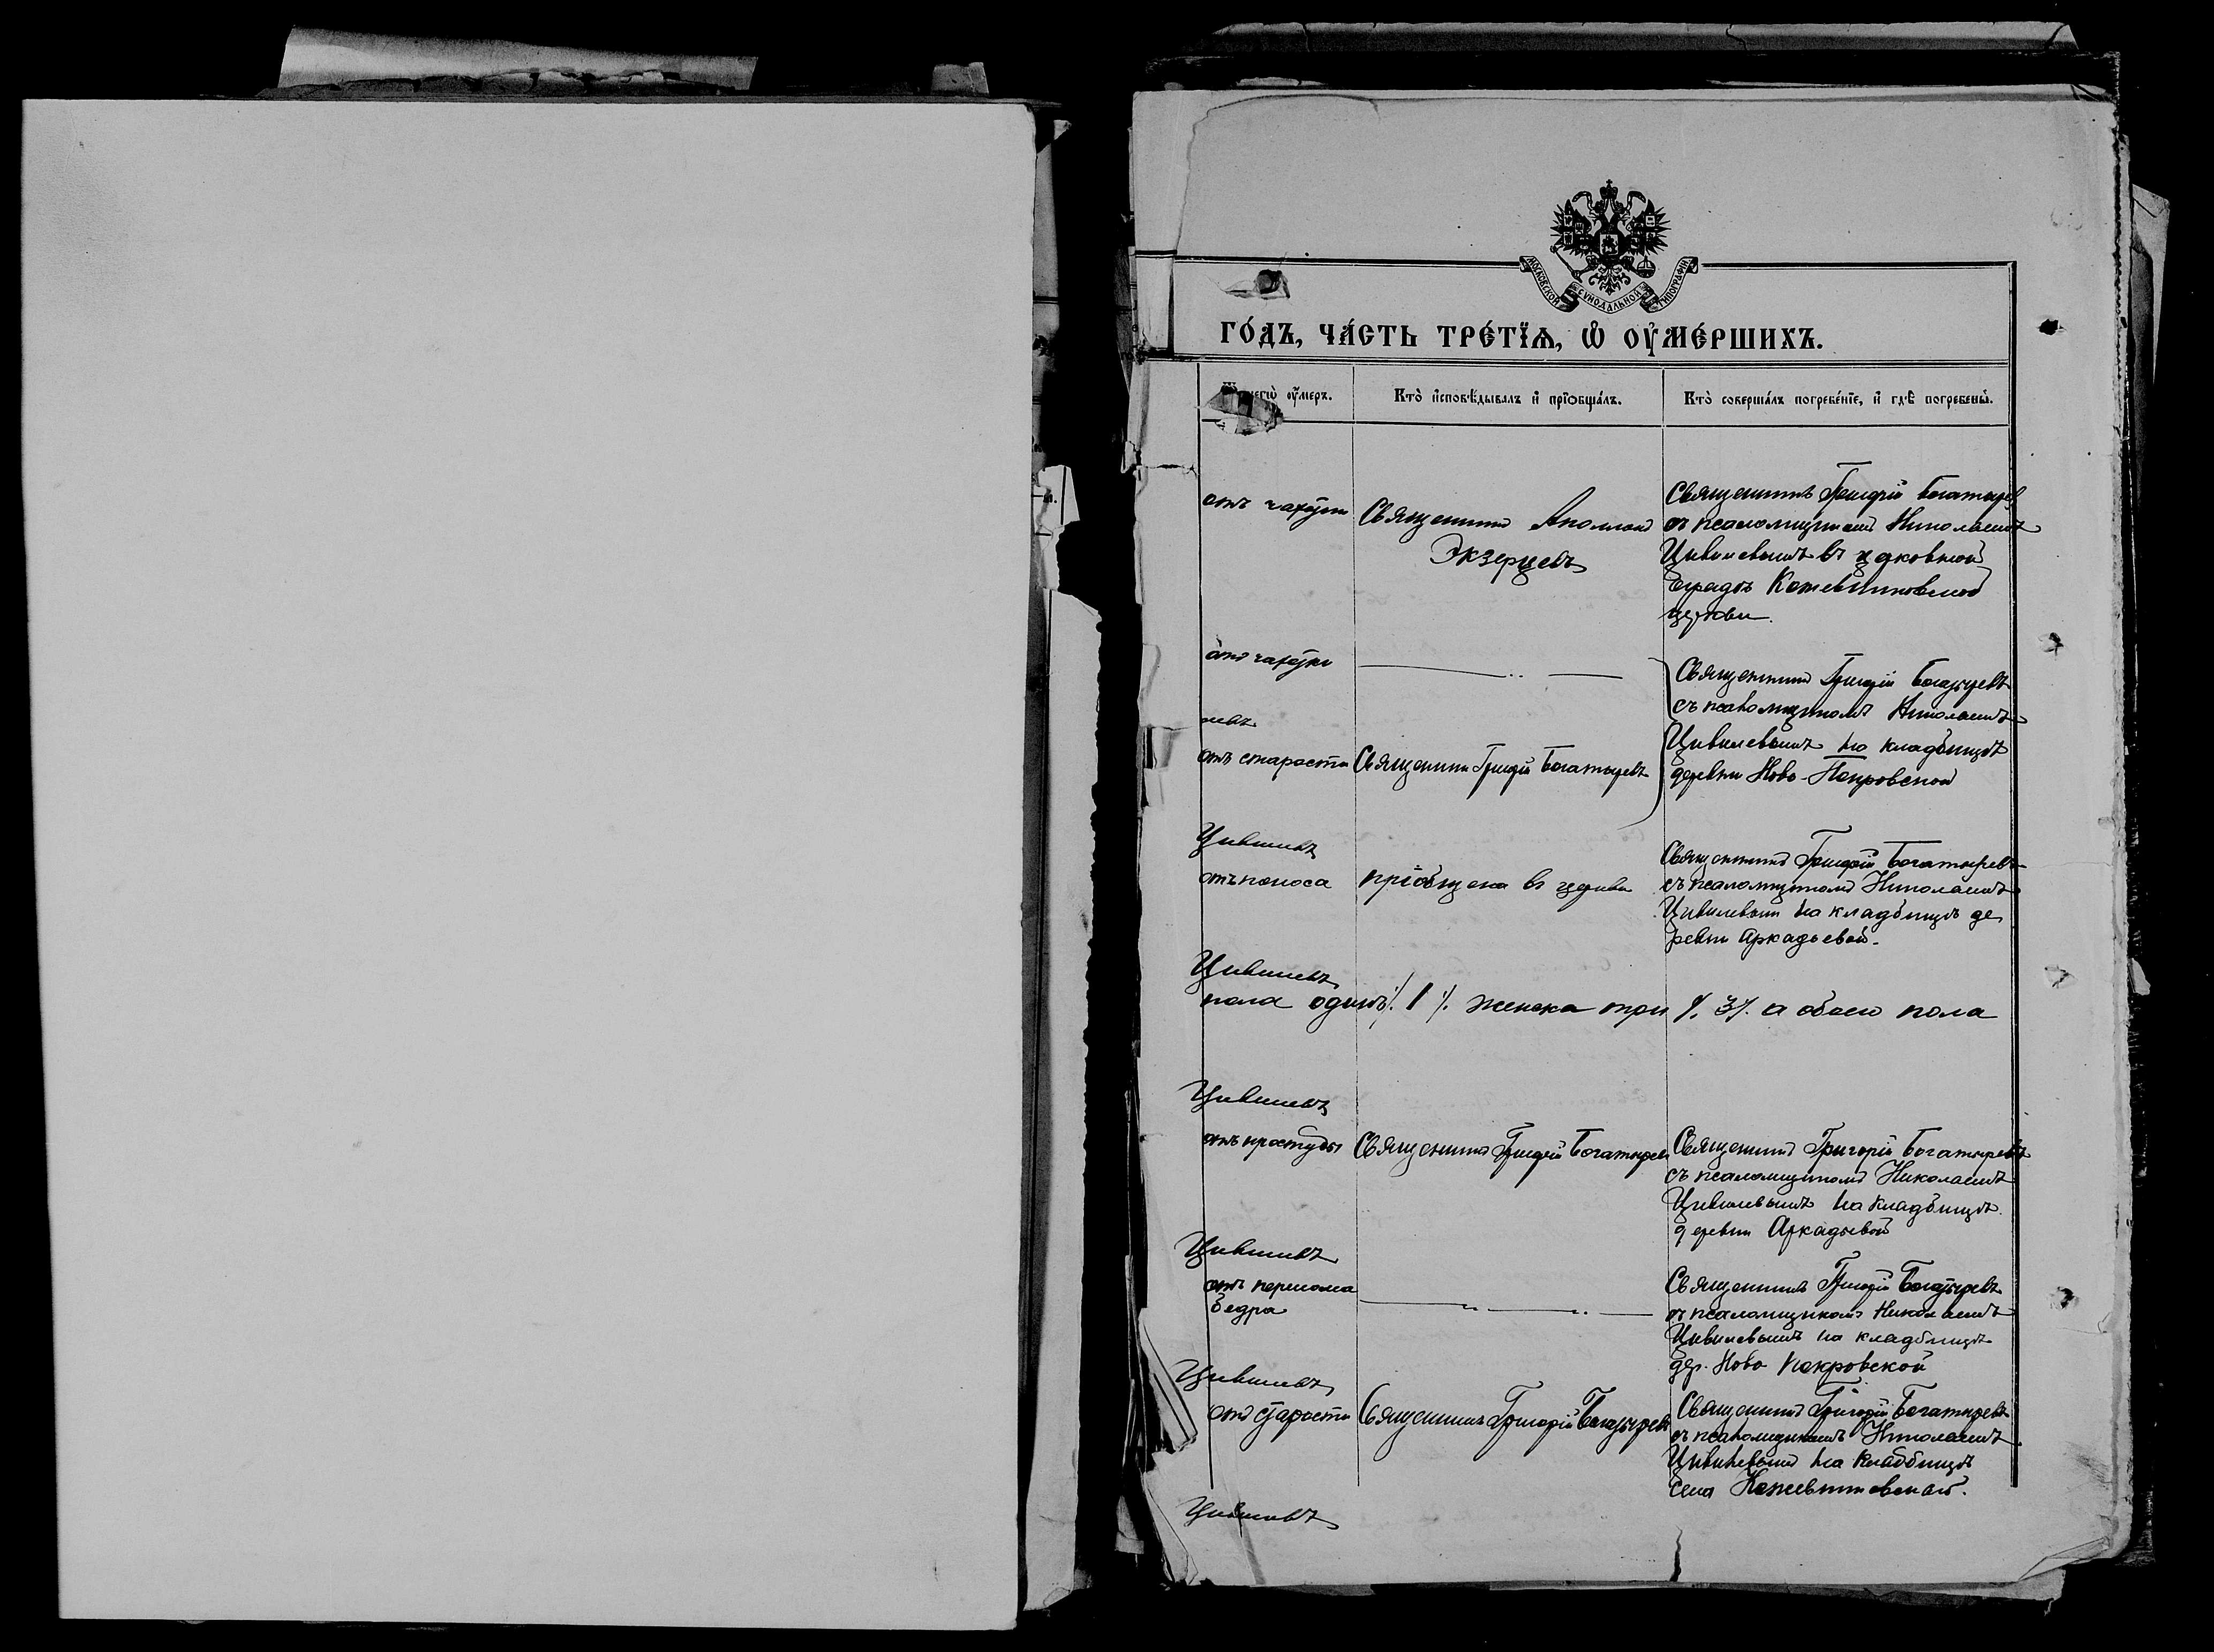 МОСКОВСКОЙ СѴНОДАЛЬНОЙ ТИПОГРАФІИ
ГО́ДЪ, ЧА́СТЬ ТРЕ́ТЇѦ, Ѡ҆ ОУ҆МЕ́РШИХЪ.
чегѡ̀ оу҆́меръ.
Кто̀ и҆сповѣ́дывалъ и҆ прїобща́лъ.
Кто̀ соверша́лъ погребе́нїе, и҆ гдѣ̀ погребены̀.
отъ чахотки
Священникъ Аполлонъ
Экзерцевъ
Священникъ Григорій Богатырев
съ псаломщикомъ Николаемъ
Цивилевымъ въ церковной
оградѣ Кожевниковской
церкви.
отъ чахотки
Священникъ Григорій Богатыревъ
съ псаломщикомъ Николаемъ
Цивилевымъ на кладбищѣ
деревни Ново-Покровской
отъ старости
Священникъ Григорій Богатыревъ
Цивилевъ
отъ поноса
пріобщена въ церкви
Священникъ Григорій Богатыревъ
съ псаломщикомъ Николаемъ
Цивилевым на кладбищѣ де
ревни Аркадьевой.
Цивилевъ
пола одинъ /. 1 /. женска три /. 3 /. а обоего пола
Цивилевъ
отъ простуды
Священникъ Григорій Богатырев
Священникъ Григорій Богатыревъ
съ псаломщикомъ Николаемъ
Цивилевымъ на кладбищѣ
деревни Аркадьевой
Цивилевъ
отъ перелома
бедра
Священникъ Григорій Богатыревъ
съ псаломщикомъ Николаемъ
Цивилевымъ на кладбищѣ
дер. Ново Покровской
Цивилевъ
отъ старости
Священникъ Григорій Богатырев
Священникъ Григорій Богатыревъ
съ псаломщикомъ Николаемъ
Цивилевымъ на кладбищѣ
села Кожевниковскаго.
Цивилевъ